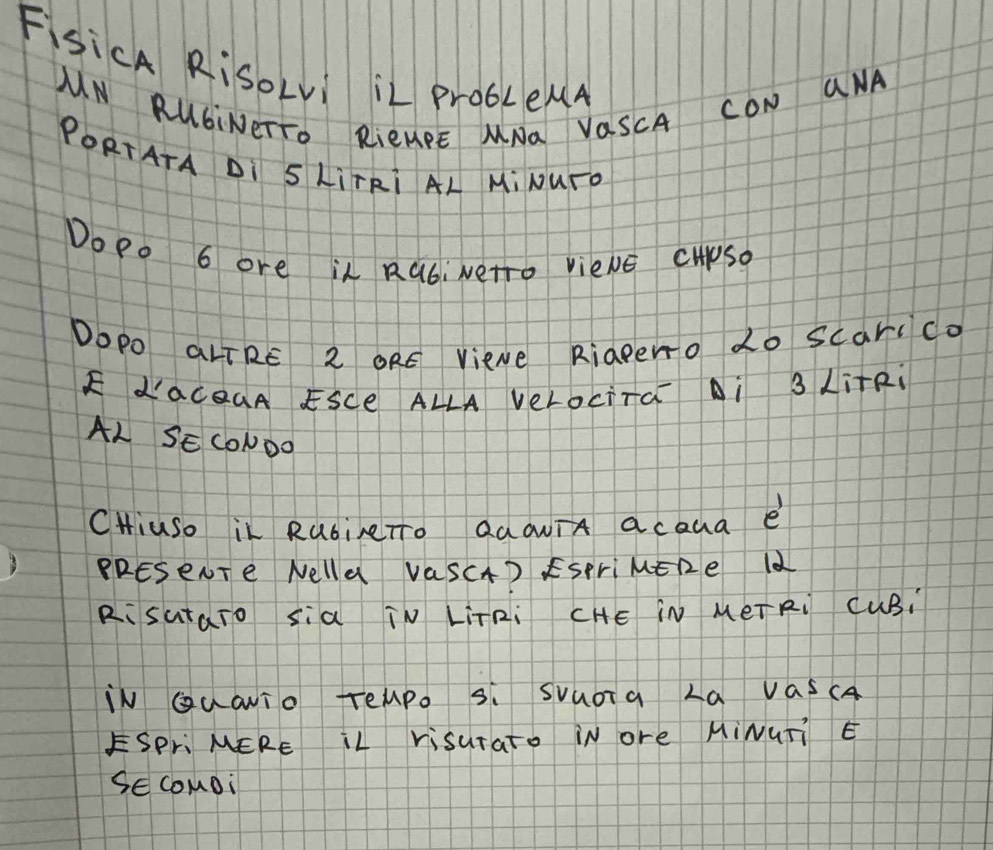 FisicA RiSoLvi iL ProbLeMA
UN RUbiNeTTO RieMPE UNa VASCA CON UNA
PORTATA Di 5 LiTRi AL MiNUTO
DoPo 6 ore iL RUbiNeTTO vieNE CHIUSO
DoPO aLTRE 2 ORE VieNe RiaPerTo Lo scarico
E L'acqua ESCe ALLA VeLociTà Di 3 LiTRi
AL SECONDO
CHiUSO iL RUbiNeTTO QuaNTA acqua è
PRESeNTe NeLLa VASCA? ESPriMERe iL
RiSuTaTO sia iN LiTRi CHE iN MeTRi CuBi
iN QuaNTo TeMPO Si svuoTa La VASCA
ESPriMERE iL riSuTaTO iN ore MiNUTi E
SECONDi